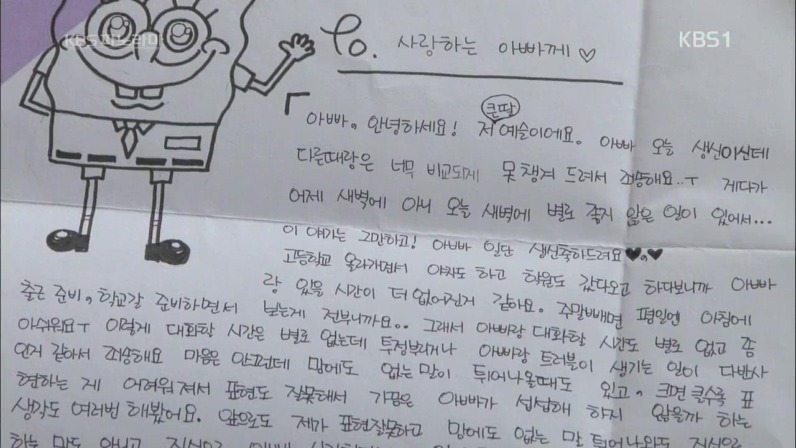 KBS파노라마
KBS1
To. 사랑하는 아빠께♡
큰딸
「아빠. 안녕하세요! 저 예슬이에요. 아빠 오늘 생신이신데
다른때랑은 너무 비교되게 못 챙겨 드려서 죄송해요..ㅜ 게다가
어제 새벽에 아니 오늘 새벽에 별로 좋지 않은 일이 있어서...
이 얘기는 그만하고! 아빠 일단 생신축하드려요♥.♥
고등학교 올라가면서 야자도 하고 학원도 갔다오고 하다보니까 아빠
랑 있을 시간이 더 없어진거 같아요. 주말빼면 평일엔 아침에
출근 준비, 학교갈 준비하면서 보는게 전부니까요.. 그래서 아빠랑 대화할 시간도 별로 없고 좀
아쉬워요ㅜ 이렇게 대화할 시간은 별로 없는데 투정부리거나 아빠랑 트러블이 생기는 일이 다반사
인거 같아서 죄송해요 마음은 안그런데 맘에도 없는 말이 튀어나올때도 있고, 크면 클수록 표
현하는 게 어려워져서 표현도 잘못해서 가끔은 아빠가 섭섭해 하지 않을까 하는
생각도 여러번 해봤어요. 앞으로도 제가 표현잘못하고 맘에도 없는 말 튀어나와도
하는 말도 아니고